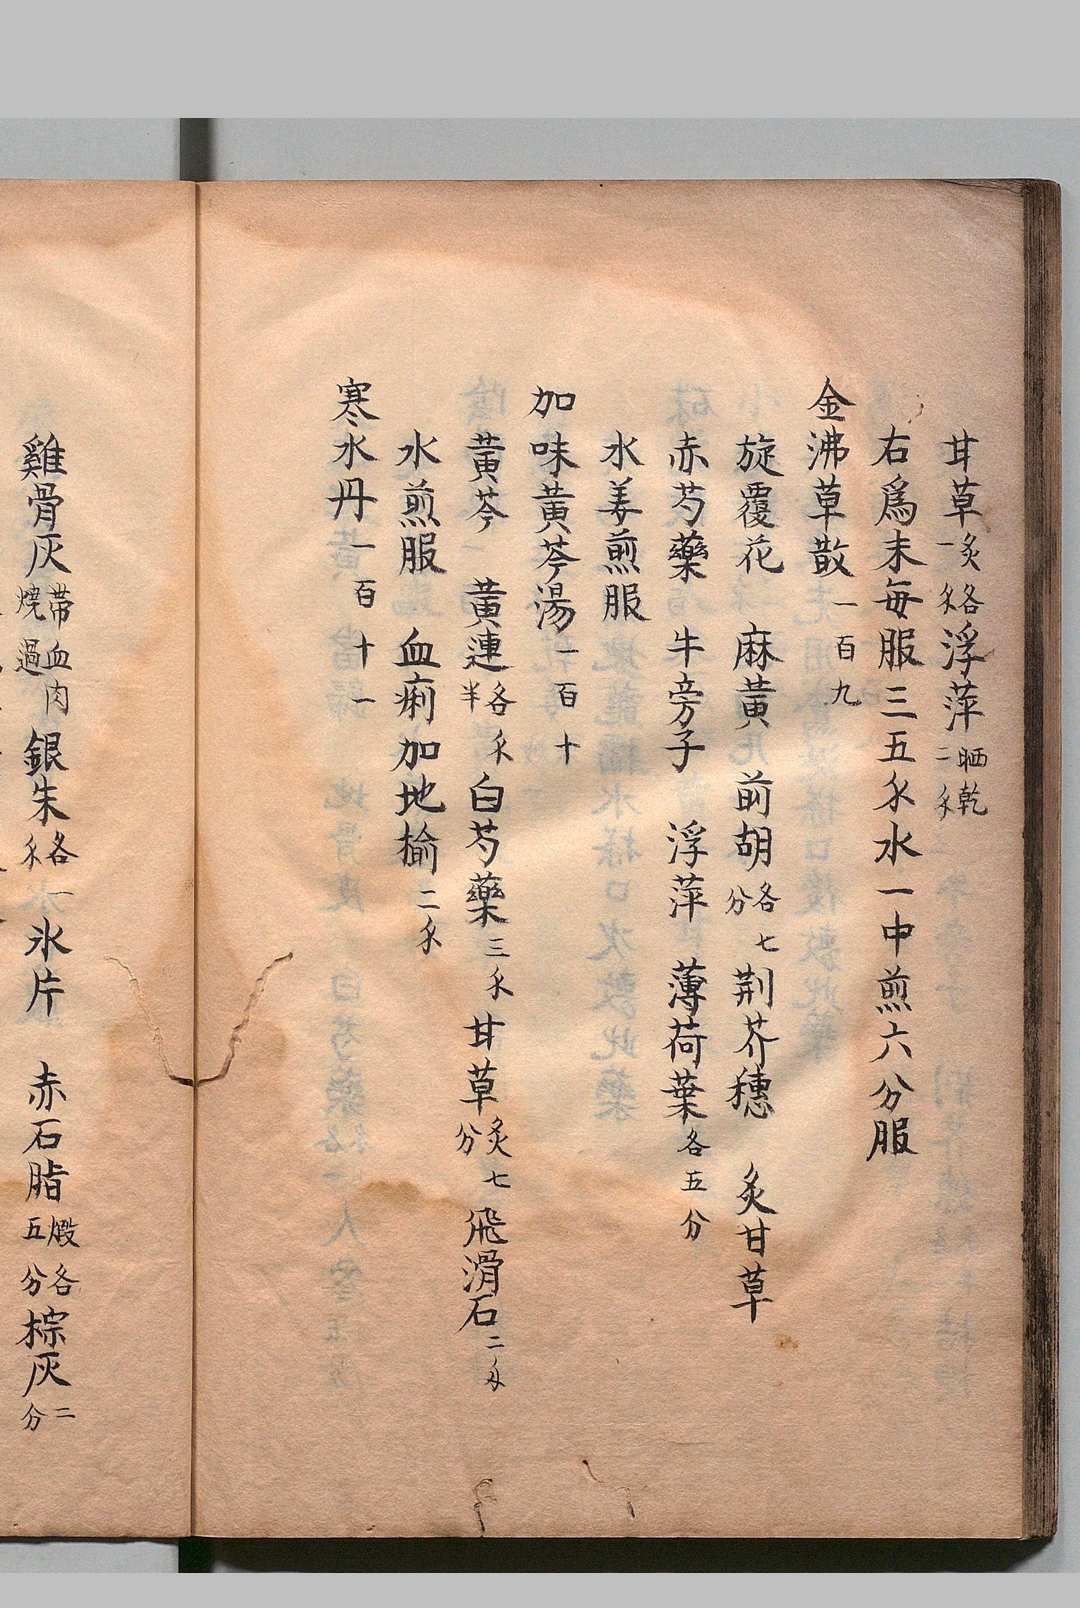 甘草炙一各彔浮萍晒乾二彔
右爲末每服三五彔水一中煎六分服
金沸草散一百九
旋覆花 麻黃 前胡各七分荆芥穗 炙甘草
赤芍藥 牛旁子 浮萍 薄荷葉各五分
水姜煎服
加味黃芩湯一百十
黃芩 黃連各彔半白芍藥三彔甘草炙七分飛滑石二彔
水煎服 血痢加地榆二彔
寒水丹一百十一
雞骨灰帶血肉燒過銀朱各一彔氷片 赤石脂煅各五分棕灰二分